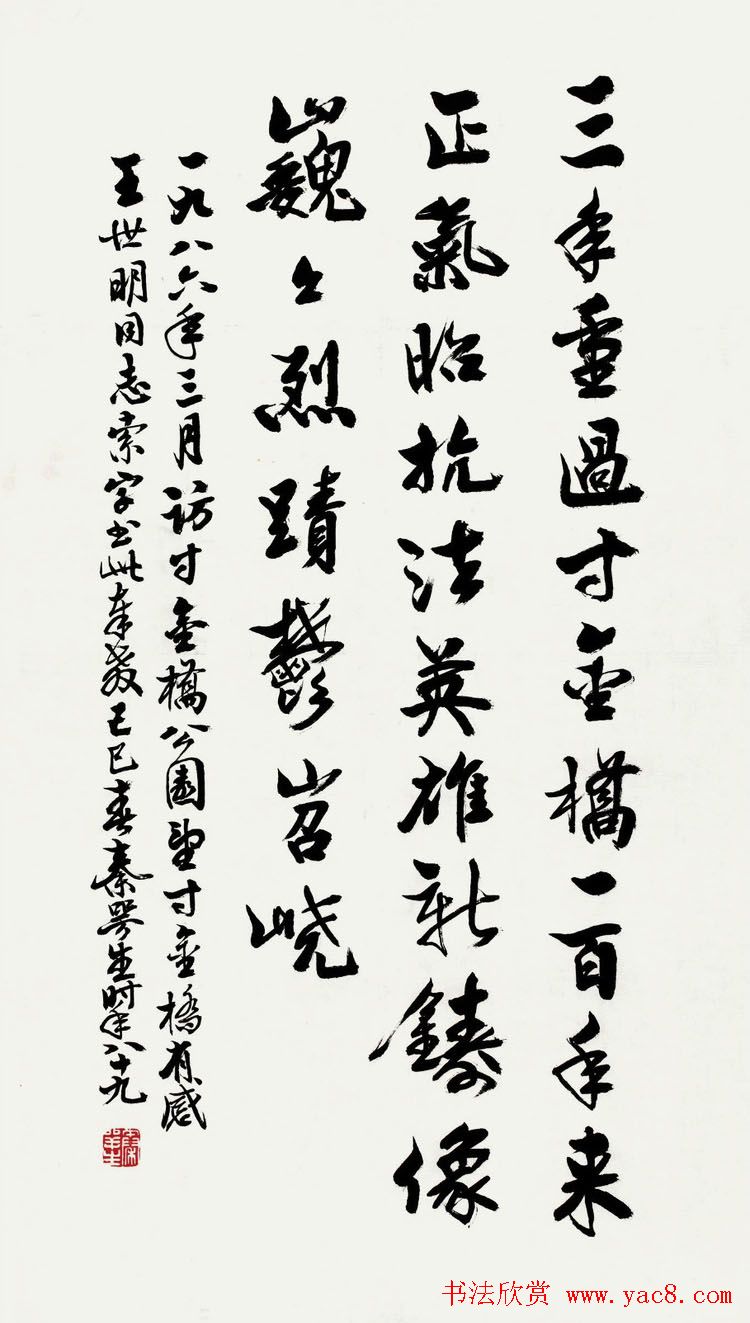 三年重過寸金橋一百年来
正氣昭抗法英雄新鑄像
巍々烈蹟鬱岧嶢
一九八六年三月訪寸金橋公園望寸金橋有感
王世明同志索字书此奉教己巳春秦咢生時年八十九
书法欣赏 www.yac8.com